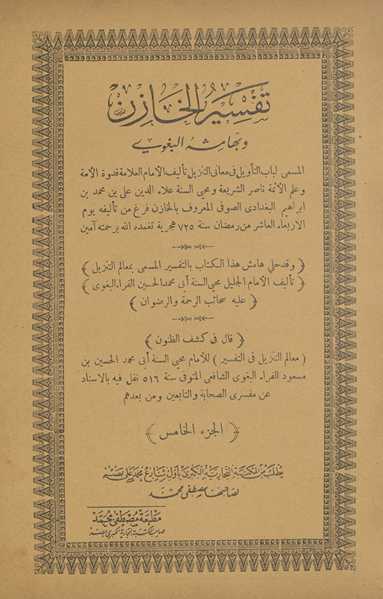 تفسير الخازن
وبهامشه البغوى
المسمى لباب التأويل فى معانى التنزيل تأليف الامام العلامة قدوة الأمة
وعلم الأئمة ناصر الشريعة ومحى السنة علاء الدين على بن محمد بن
ابراهيم البغدادى الصوفى المعروف بالخازن فرغ من تأليفه يوم
الاربعاء العاشر من رمضان سنة ٧٢٥ هجرية تغمده الله برحمته آمين
﴿ وقد حلى هامش هذا الكتاب بالتفسير المسمى بمعالم التنزيل ﴾
﴿ تأليف الامام الجليل محيى السنة أبى محمد الحسين الفراء البغوى ﴾
﴿ عليه سحائب الرحمة والرضوان ﴾
﴿ قال فى كشف الظنون ﴾
( معالم التنزيل فى التفسير ) للامام محيى السنة أبى محمد الحسين بن
مسعود الفراء البغوى الشافعى المتوفى سنة ٥١٦ نقل فيه بالاسناد
عن مفسرى الصحابة والتابعين ومن بعدهم
﴿ الجزء الخامس ﴾
يطلب من المكتبة التجارية الكبرى بأول شارع محمد على بمصر
لصاحبها مصطفى محمد
مطبعة مصطفى محمد